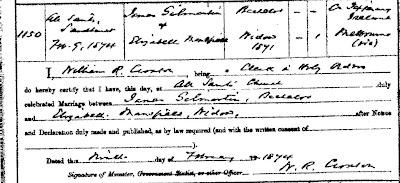 1150 All Saints, Sandhurst Feb. 9, 1874 James Gilmartin & Elizabeth Mansfield Bachelor Widow 1871 Co Tipperary Ireland Melbourne (Vic)
I, William R. Croxton, being a Clerk in Holy Orders
do hereby certify that I have, this day, at All Saints' Church duly
celebrated Marriage between James Gilmartin, Bachelor
and Elizabeth Mansfield, Widow, after Notice
and Declaration duly made and published, as by law required (and with the written consent of
).
Dated this Ninth day of February 1874
W. R. Croxton
Signature of Minister, Government Statist, or other Officer